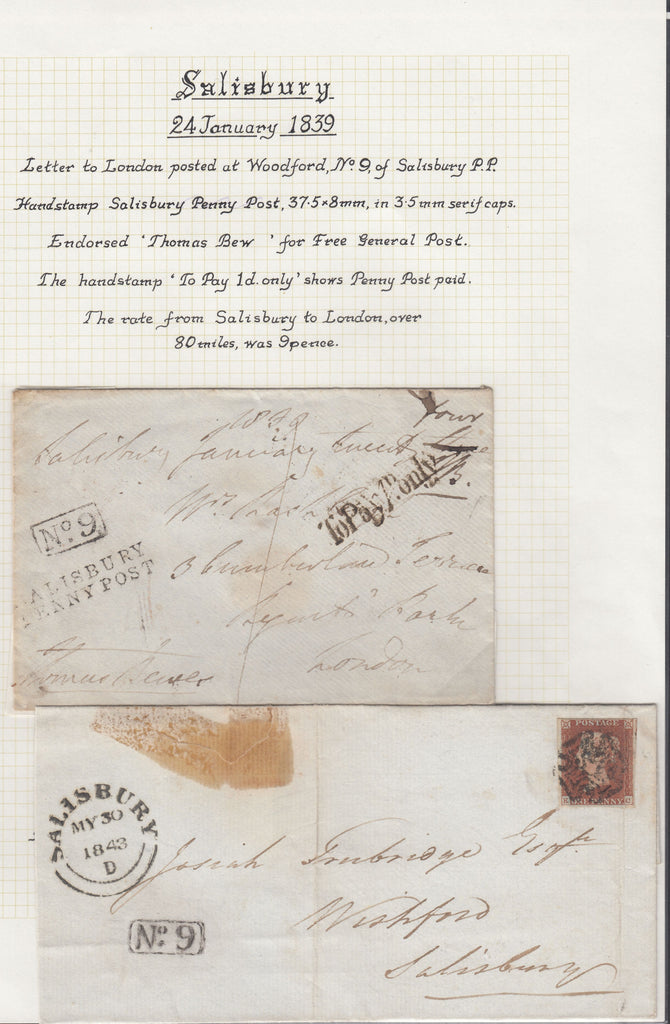 Salisbury
24 January 1839
Letter to London posted at Woodford, No. 9, of Salisbury P.P.
Handstamp Salisbury Penny Post, 37.5×8mm, in 3.5mm serif caps.
Endorsed 'Thomas Bew ' for Free General Post.
The handstamp 'To Pay 1d. only' shows Penny Post paid.
The rate from Salisbury to London, over
80 miles, was 9 pence.
1839
four
Salisbury January twenty
To Pay 1d. only
No. 9
SALISBURY
PENNY POST
3 Cumberland Terrace
Regents Park
London
Thomas
POSTAGE
SALISBURY
MY 30
1843
D
Josiah Trubridge Esqr
Wishford
Salisbury
No. 9